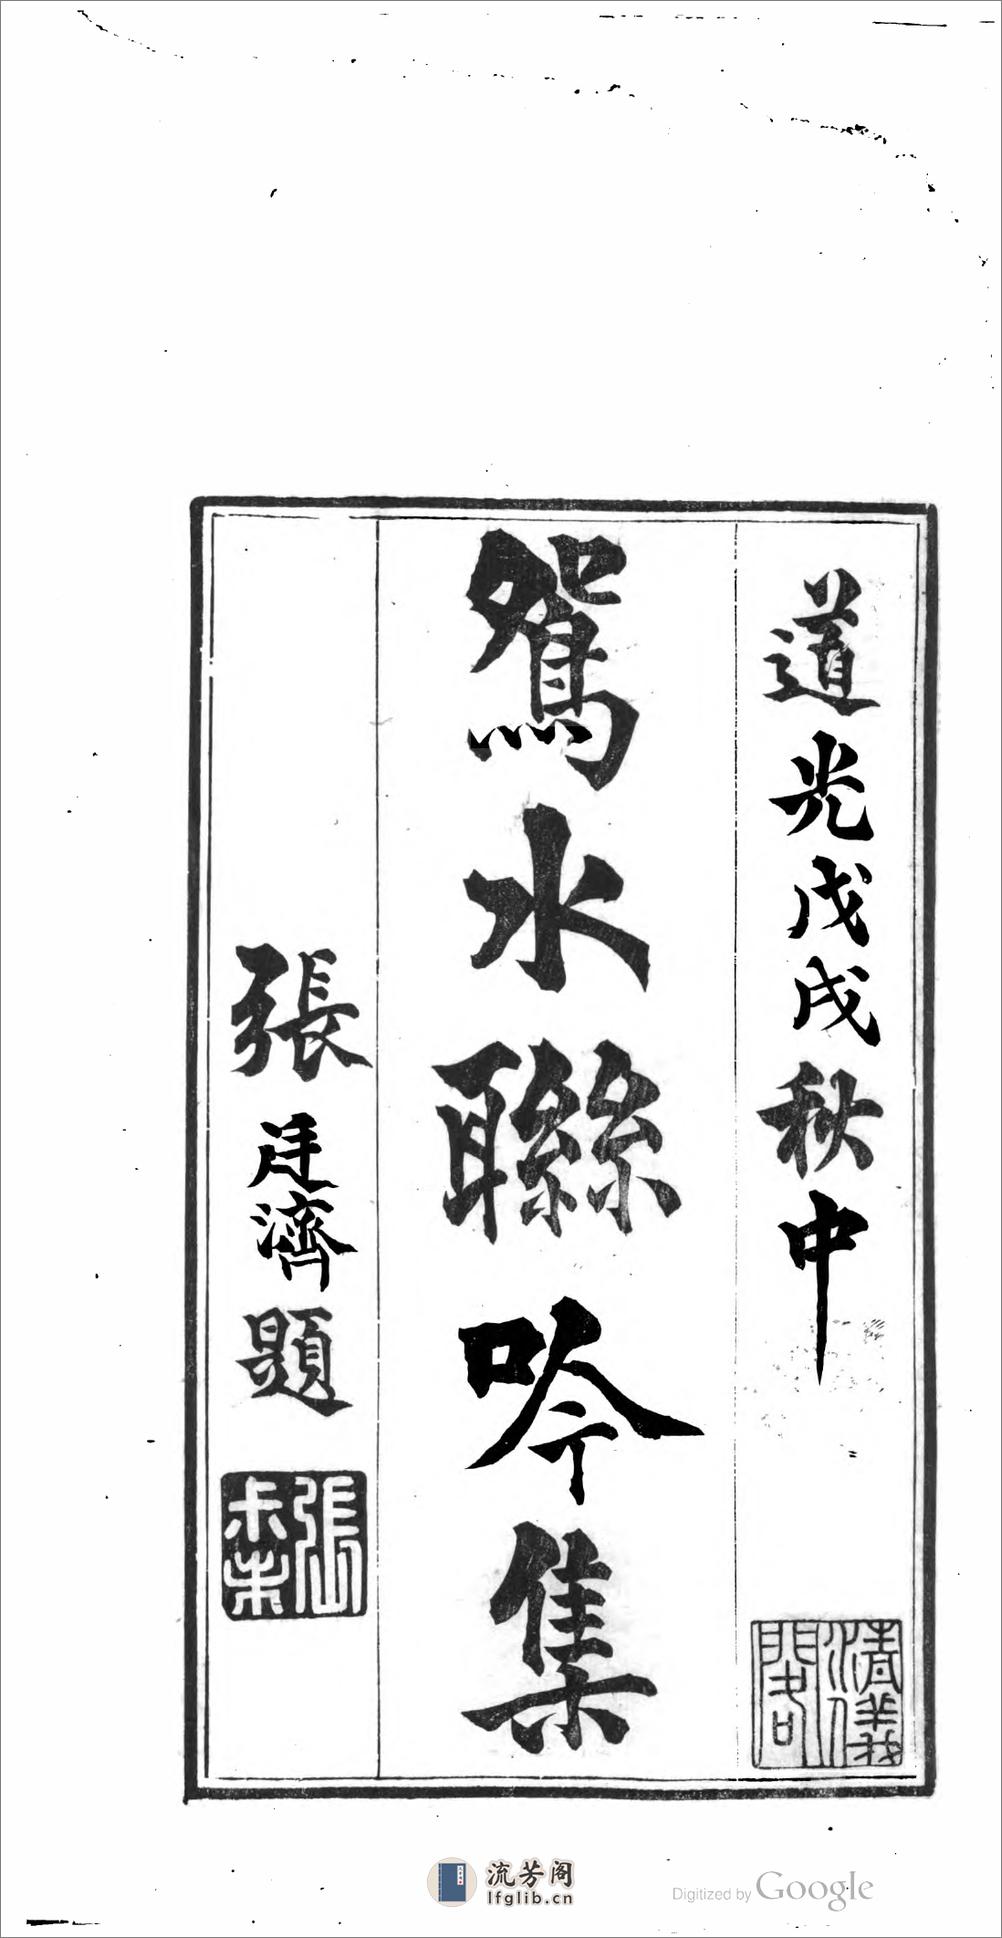 道光戊戌秋中
清儀閣
鴛水聯吟集
張廷濟題
張叔未
流芳阁
lfglib.cn
Digitized by Google